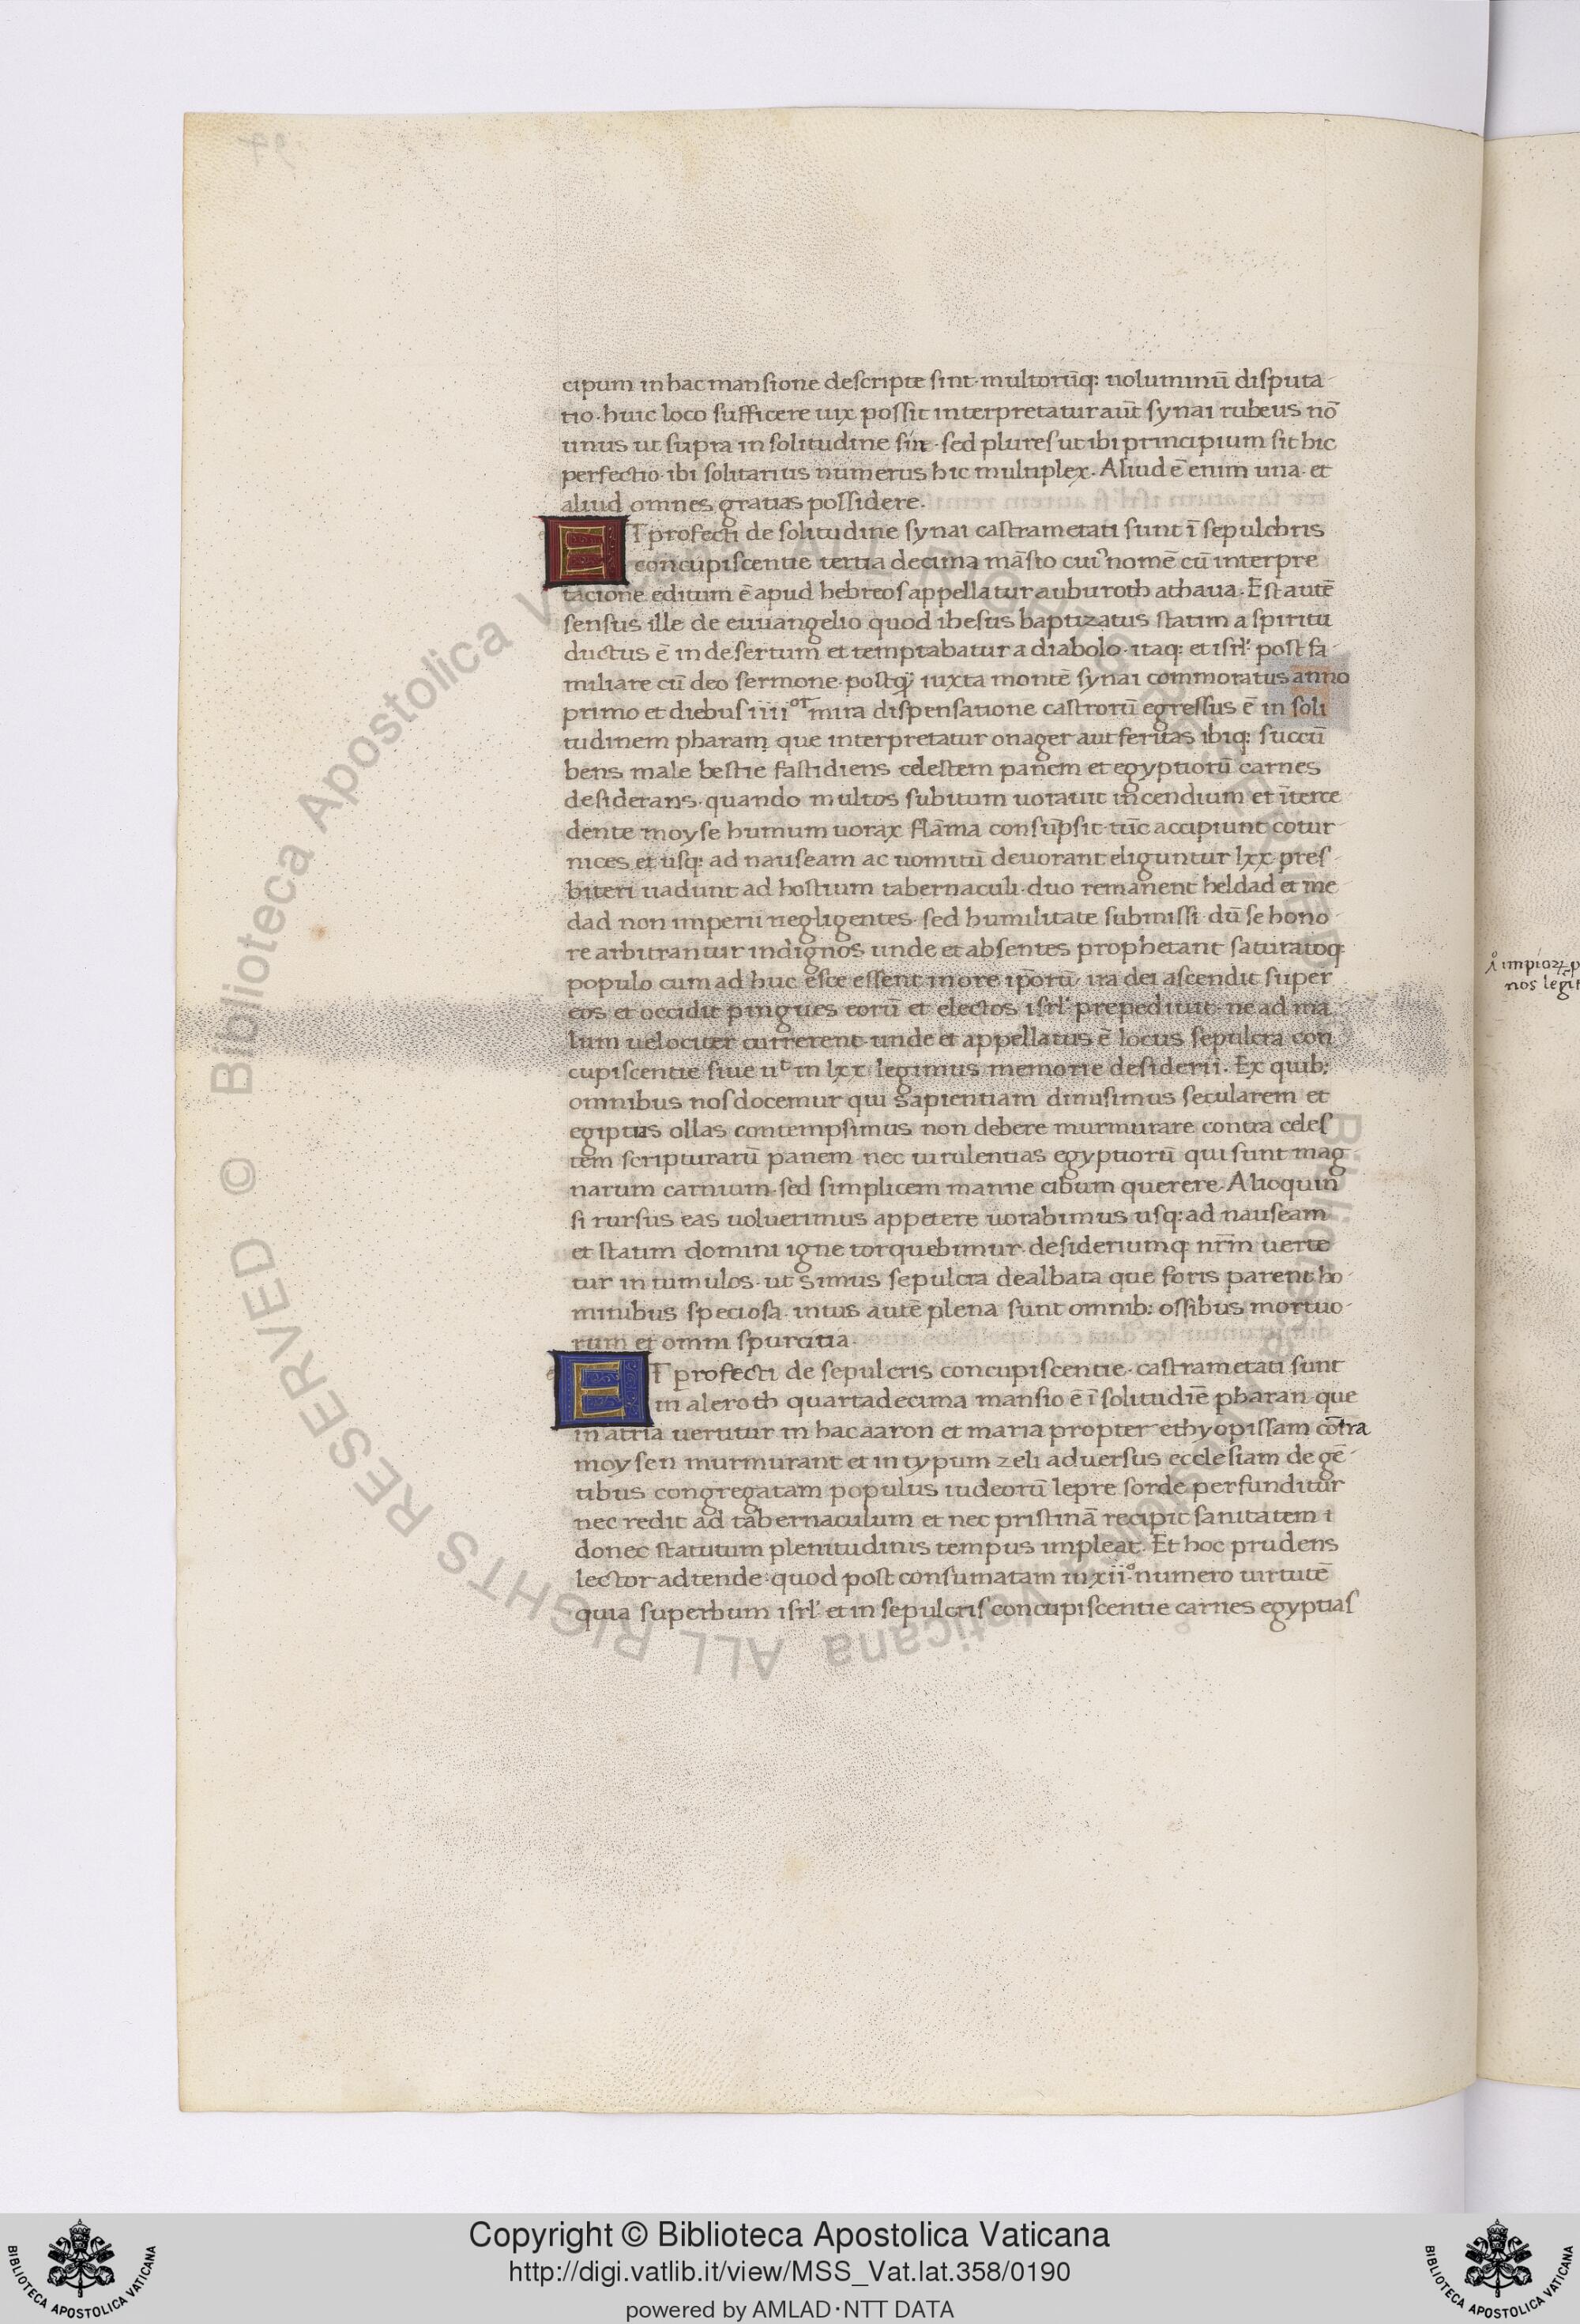 cipum in hac mansione descripte sint · multorūq: uoluminū disputa
tio · huic loco sufficere uix possit interpretatur aūt synai rubeus nō
unus ut supra in solitudine sin · sed plures ut ibi principium sit hic
perfectio · ibi solitarius numerus hic multiplex. Aliud ē enim una · et
aliud omnes gratias possidere.
ET profecti de solitudine synai castrametati sunt ī sepulchris
concupiscentie tertia decima māsio cui' nomē cū interpre
tacione editum ē apud hebreos appellatur auburoth athaua. Est autē
sensus ille de euuangelio quod ihesus baptizatus statim a spiritu
ductus ē in desertum et temptabatur a diabolo · itaq: et isrl' post fa
miliare cū deo sermone · postq̄ iuxta montē synai commoratus anno
primo et diebus iiiior mira dispensatione castrorū egressus ē in soli
tudinem pharam que interpretatur onager aut feritas ibiq: succū
bens male bestie fastidiens celestem panem et egyptiorū carnes
desiderans · quando multos subitum uorauit incendium et īterce
dente moyse humum uorax flāma consūpsit · tūc accipiunt cotur
nices et usq: ad nauseam ac uomitū deuorant eliguntur lxx · pres
biteri uadunt ad hostium tabernaculi · duo remanent heldad et me
dad non imperii negligentes · sed humilitate submissi · dū se hono
re arbitrantur indignos unde et absentes prophetant saturatoq:
populo cum ad huc esce essent in ore ip̄orū · ira dei ascendit super
eos et occidit pingues eorū et electos isrl' prepediuit · ne ad ma
lum uelociter currerent · unde et appellatus ē locus sepulcra con
cupiscentie siue ut in lxx · legimus memorie desiderii. Ex quib:
omnibus nos docemur qui sapientiam dimisimus secularem et
egiptias ollas contempsimus non debere murmurare contra celes
tem scripturarū panem · nec uirulentias egyptiorū qui sunt mag
narum carnium · sed simplicem manne cibum querere. Alioquin
si rursus eas uoluerimus appetere uorabimus usq: ad nauseam
et statim domini igne torquebimur · desideriumq: nr̄m uerte
tur in tumulos · ut simus sepulcra dealbata que foris parent ho
minibus speciosa · intus autē plena sunt omnib: ossibus mortuo
rum et omni spurcitia.
ET profecti de sepulcris concupiscentie · castrametati sunt
in aleroth quartadecima mansio ē ī solitudiē pharan · que
in atria uertitur in hac aaron et maria propter ethyopissam cōtra
moysen murmurant et in typum zeli aduersus ecclesiam de gē
tibus congregatam populus iudeorū lepre sorde perfunditur
nec redit ad tabernaculum et nec pristinā recipit sanitatem i
donec statutum plenitudinis tempus impleat. Et hoc prudens
lector adtende · quod post consumatam in xiio numero uirtutē
quia superbum isrl' et in sepulcris concupiscentie carnes egyptias
Copyright © Biblioteca Apostolica Vaticana
http://digi.vatlib.it/view/MSS_Vat.lat.358/0190
powered by AMLAD·NTT DATA